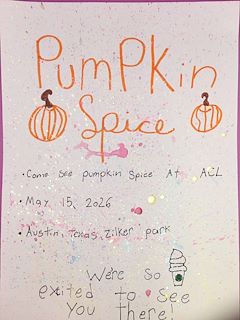 PumPKin
Spice
• Come see pumpkin Spice At ACL
• May 15, 2026
• Austin, Texas, Zilker park
We're So
exited to See
You there!